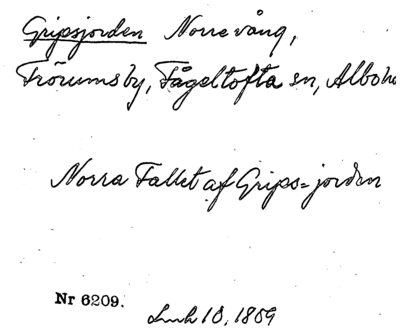 Gripsjorden Norrevång,
Frörumsby, Fågeltofta sn, Albo
Norra Fallet af Grips=jorden
Nr 6209.
Lmh 10, 1809